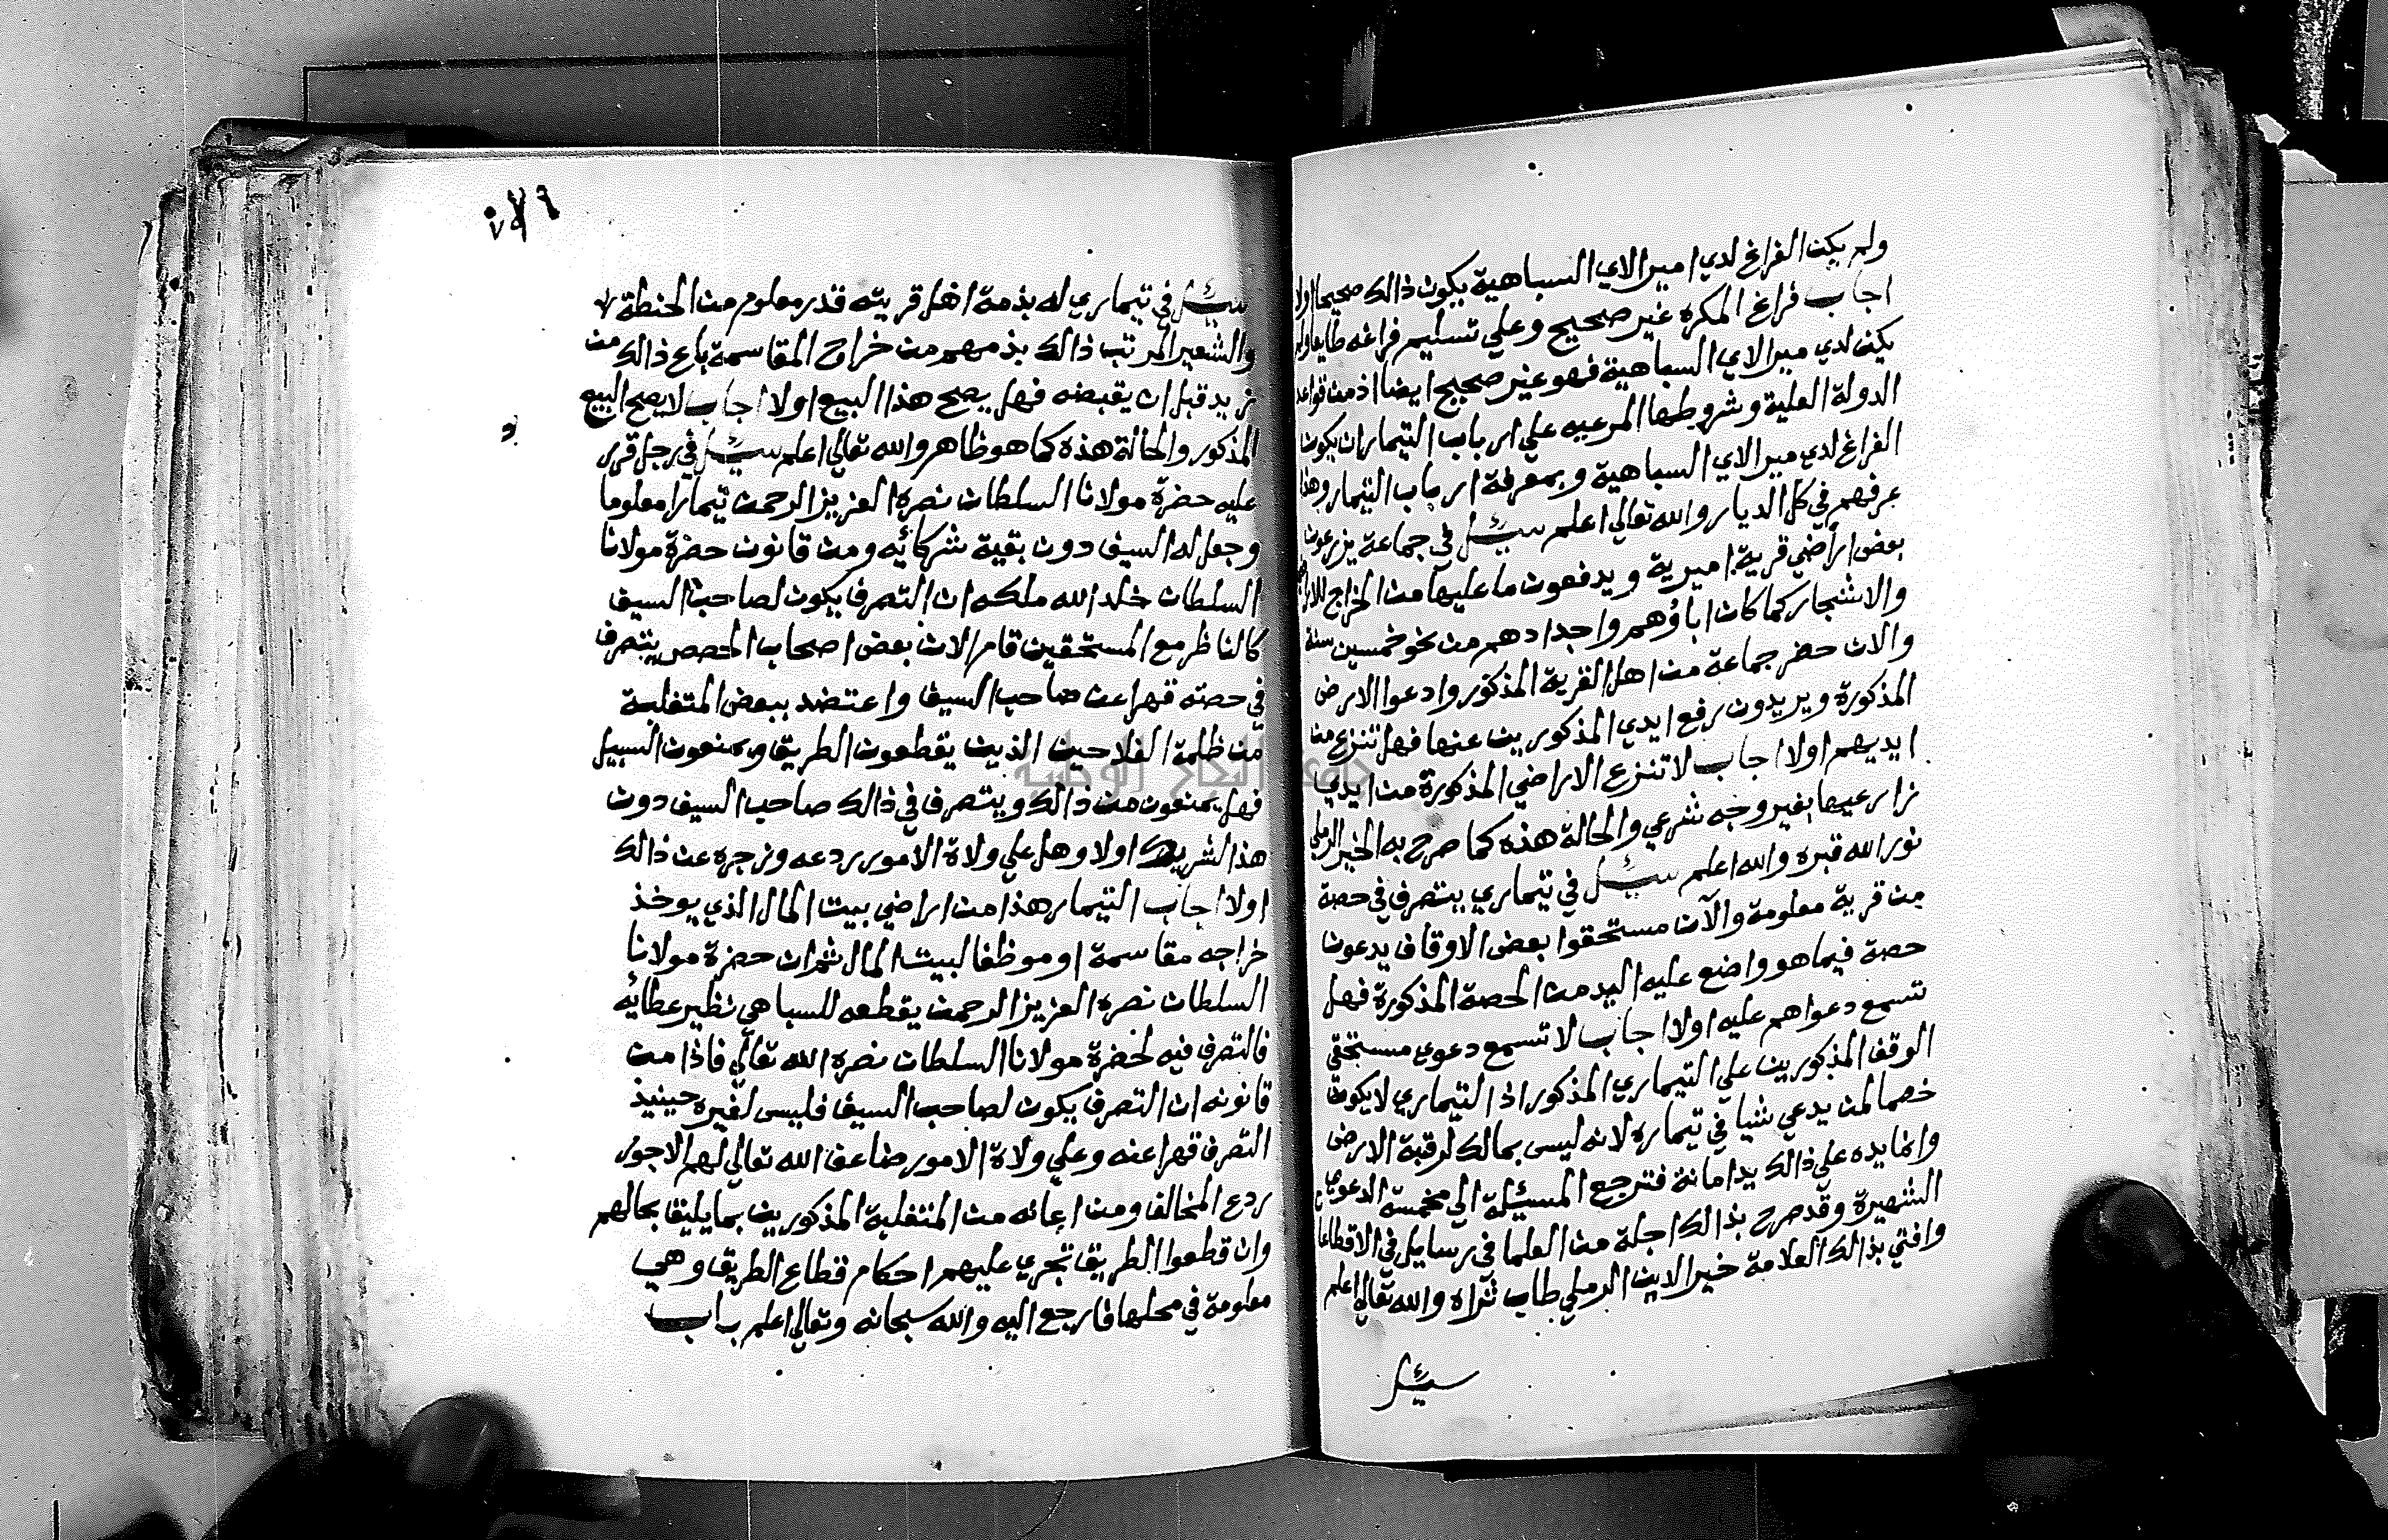 ولم يكن الفراغ لدي امير الاي السباهية يكون ذالك صحيحا اولا
اجاب فراغ المكره غير صحيح وعلي تسليم فراغه طايعا ولم
يكن لدي مير الاي السباهية فهو غير صحيح ايضا اذ من قواعد
الدولة العلية وشروطها المرعيه علي ارباب التيماران يكون
الفراغ لدي مير الاي السباهية وبمعرفة ارباب التيمار وهذا
عرفهم في كل الديار والله تعالي اعلم سئل في جماعة يزرعون
بعض اراضي قرية اميرية ويدفعون ما عليها من الخراج للارض
والاشجار كما كان اباؤهم واجدادهم من نحو خمسين سنة
والان حضر جماعة من اهل القرية المذكور وادعوا الارض
المذكورة ويريدون رفع ايدي المذكورين عنها فهل تنزع من
ايديهم اولا اجاب لا تنزع الاراضي المذكورة من ايدي
زارعيها بغير وجه شرعي والحالة هذه كما صرح به الخير الرملي
نور الله قبره والله اعلم سئل في تيماري يتصرف في حصة
من قرية معلومة والآن مستحقوا بعض الاوقاف يدعون
حصة فيما هو واضع عليه اليد من الحصة المذكورة فهل
تسمع دعواهم عليه اولا اجاب لا تسمع دعوي مستحقي
الوقف المذكورين علي التيماري المذكور اذ التيماري لا يكون
خصما لمن يدعي شيا في تيماره لانه ليس بمالك لرقبة الارض
وانما يده علي ذالك يد امانة فترجع المسئلة الي مخمسة الدعوي
الشهيرة وقد صرح بذالك اجلة من العلما في رسايل في الاقطاعا
وافتي بذالك العلامة خير الدين الرملي طاب ثراه والله تعالي اعلم
سئل
سئل في تيماري له بذمة اهل قريته قدر معلوم من الحنطة
والشعير المرتب ذالك بذمهم من خراج المقاسمة باع ذالك من
زيد قبل ان يقبضه فهل يصح هذا البيع اولا اجاب لا يصح البيع
المذكور والحالة هذه كما هو ظاهر والله تعالي اعلم سئل في رجل قرر
عليه حضرة مولانا السلطان نصره العزيز الرحمن تيمارا معلوما
وجعل له السيف دون بقية شركائه ومن قانون حضرة مولانا
السلطان خلد الله ملكه ان التصرف يكون لصاحب السيف
كالناظر مع المستحقين قام الان بعض اصحاب الحصص يتصرف
في حصته قهرا عن صاحب السيف واعتضد ببعض المتغلبة
من ظلمة الفلاحين الذين يقطعون الطريق ويمنعون السبيل
فهل يمنعون من ذالك ويتصرف في ذالك صاحب السيف دون
هذا الشريك اولا وهل علي ولاة الامور ردعه وزجره عن ذالك
اولا اجاب التيمار هذا من اراضي بيت المال الذي يوخذ
خراجه مقاسمة او موظفا لبيت المال ثم ان حضرة مولانا
السلطان نصره العزيز الرحمن يقطعه للسباهي نظير عطائه
فالتصرف فيه لحضرة مولانا السلطان نصره الله تعالي فاذا من
قانونه ان التصرف يكون لصاحب السيف فليس لغيره حينيذ
التصرف قهرا عنه وعلي ولاة الامور ضاعف الله تعالي لهم الاجور
ردع المخالف ومن اعانه من المتغلبة المذكورين بما يليق بحالهم
وان قطعوا الطريق تجري عليهم احكام قطاع الطريق وهي
معلومة في محلها فارجع اليه والله سبحانه وتعالي اعلم باب